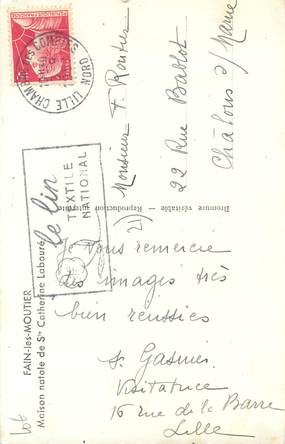 CHAMBRE DES COMPTES
LILLE
NORD
le lin
TEXTILE
NATIONAL
Monsieur F. Routier
22 Rue Bablot
Châlons s/ Marne
Bromure véritable - Reproduction interdite
FAIN-les-MOUTIER
Maison natale de Ste Catherine Labouré
Je vous remercie
des images très
bien reussies
S. Gasnier
Visitatrice
16 rue de la Barre
Lille